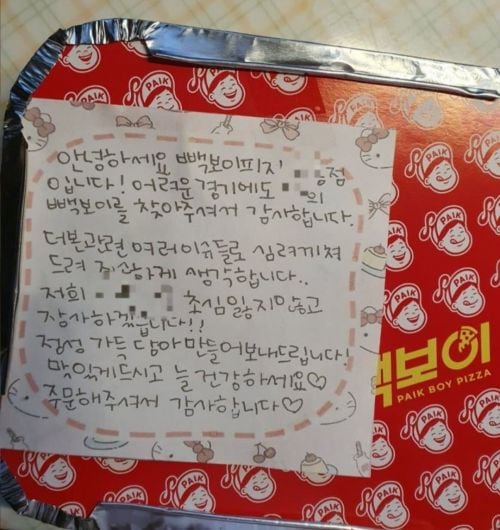 안녕하세요 빽보이피자 점
입니다! 어려운 경기에도 의
빽보이를 찾아주셔서 감사합니다.
더본관련 여러이슈들로 심려끼쳐
드려 죄송하게 생각합니다..
저희 초심잃지않고
장사하겠습니다!!
정성 가득 담아만들어보내드립니다!
맛있게드시고 늘 건강하세요♡
주문해주셔서 감사합니다♡
빽보이
PAIK BOY PIZZA
PAIK